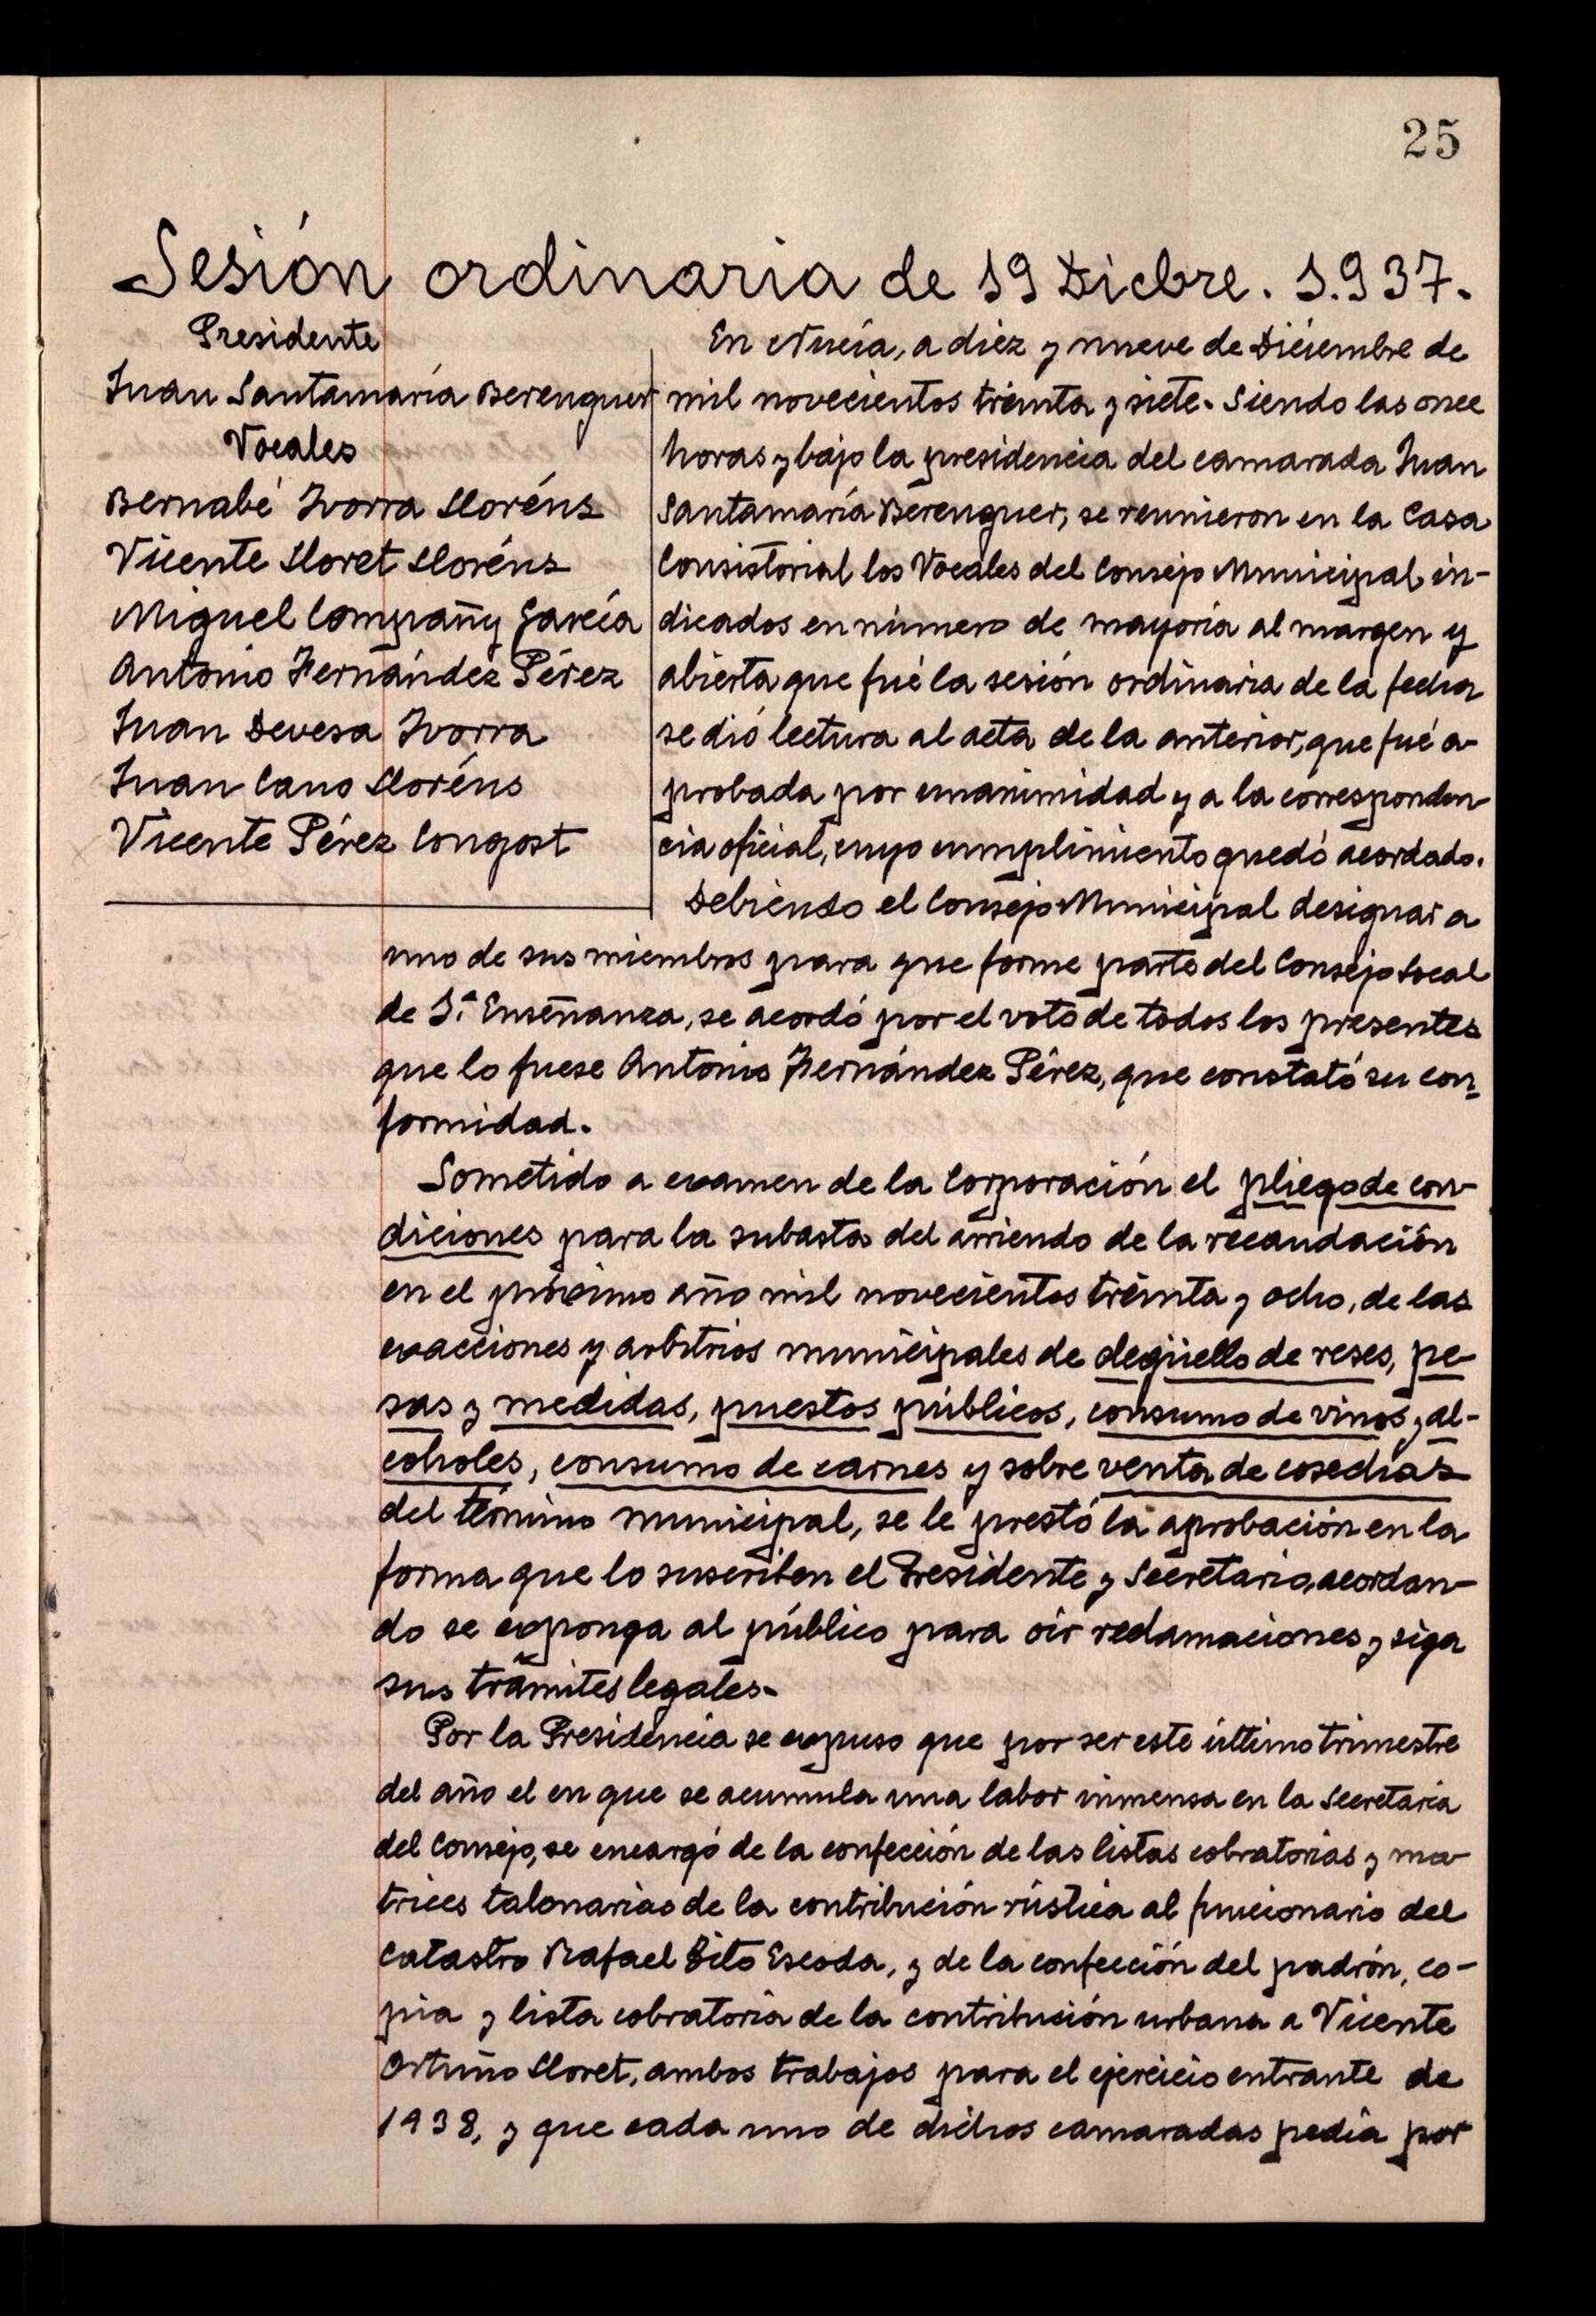 25
Sesión ordinaria de 19 Dicbre. 1.937.
Presidente
Juan Santamaría Berenguer
Vocales
Bernabé Ivorra Lloréns
Vicente Lloret Lloréns
Miguel Compañy García
Antonio Fernández Pérez
Juan Devesa Ivorra
Juan Cano Lloréns
Vicente Pérez Congost
En Nucía, a diez y nueve de Diciembre de
mil novecientos treinta y siete. Siendo las once
horas y bajo la presidencia del camarada Juan
Santamaría Berenguer, se reunieron en la Casa
Consistorial los Vocales del Consejo Municipal in-
dicados en número de mayoría al margen y
abierta que fué la sesión ordinaria de la fecha
se dió lectura al acta de la anterior, que fué a-
probada por unanimidad y a la corresponden-
cia oficial, cuyo cumplimiento quedó acordado.
Debiendo el Consejo Municipal designar a
uno de sus miembros para que forme parte del Consejo Local
de 1ª. Enseñanza, se acordó por el voto de todos los presentes
que lo fuese Antonio Fernández Pérez, que constató su con-
formidad.
Sometido a examen de la Corporación el pliego de con-
diciones para la subasta del arriendo de la recaudación
en el próximo año mil novecientos treinta y ocho, de las
exacciones y arbitrios municipales de degüello de reses, pe-
sas y medidas, puestos públicos, consumo de vinos y al-
coholes, consumo de carnes y sobre venta de cosechas
del término municipal, se le prestó la aprobación en la
forma que lo suscriben el Presidente y Secretario, acordan-
do se exponga al público para oir reclamaciones y siga
sus trámites legales.
Por la Presidencia se expuso que por ser este último trimestre
del año el en que se acumula una labor inmensa en la Secretaría
del Consejo, se encargó de la confección de las listas cobratorias y ma-
trices talonarias de la contribución rústica al funcionario del
Catastro Rafael Bito Escoda, y de la confección del padrón, co-
pia y lista cobratoria de la contribución urbana a Vicente
Ortuño Lloret, ambos trabajos para el ejercicio entrante de
1938, y que cada uno de dichos camaradas pedía por